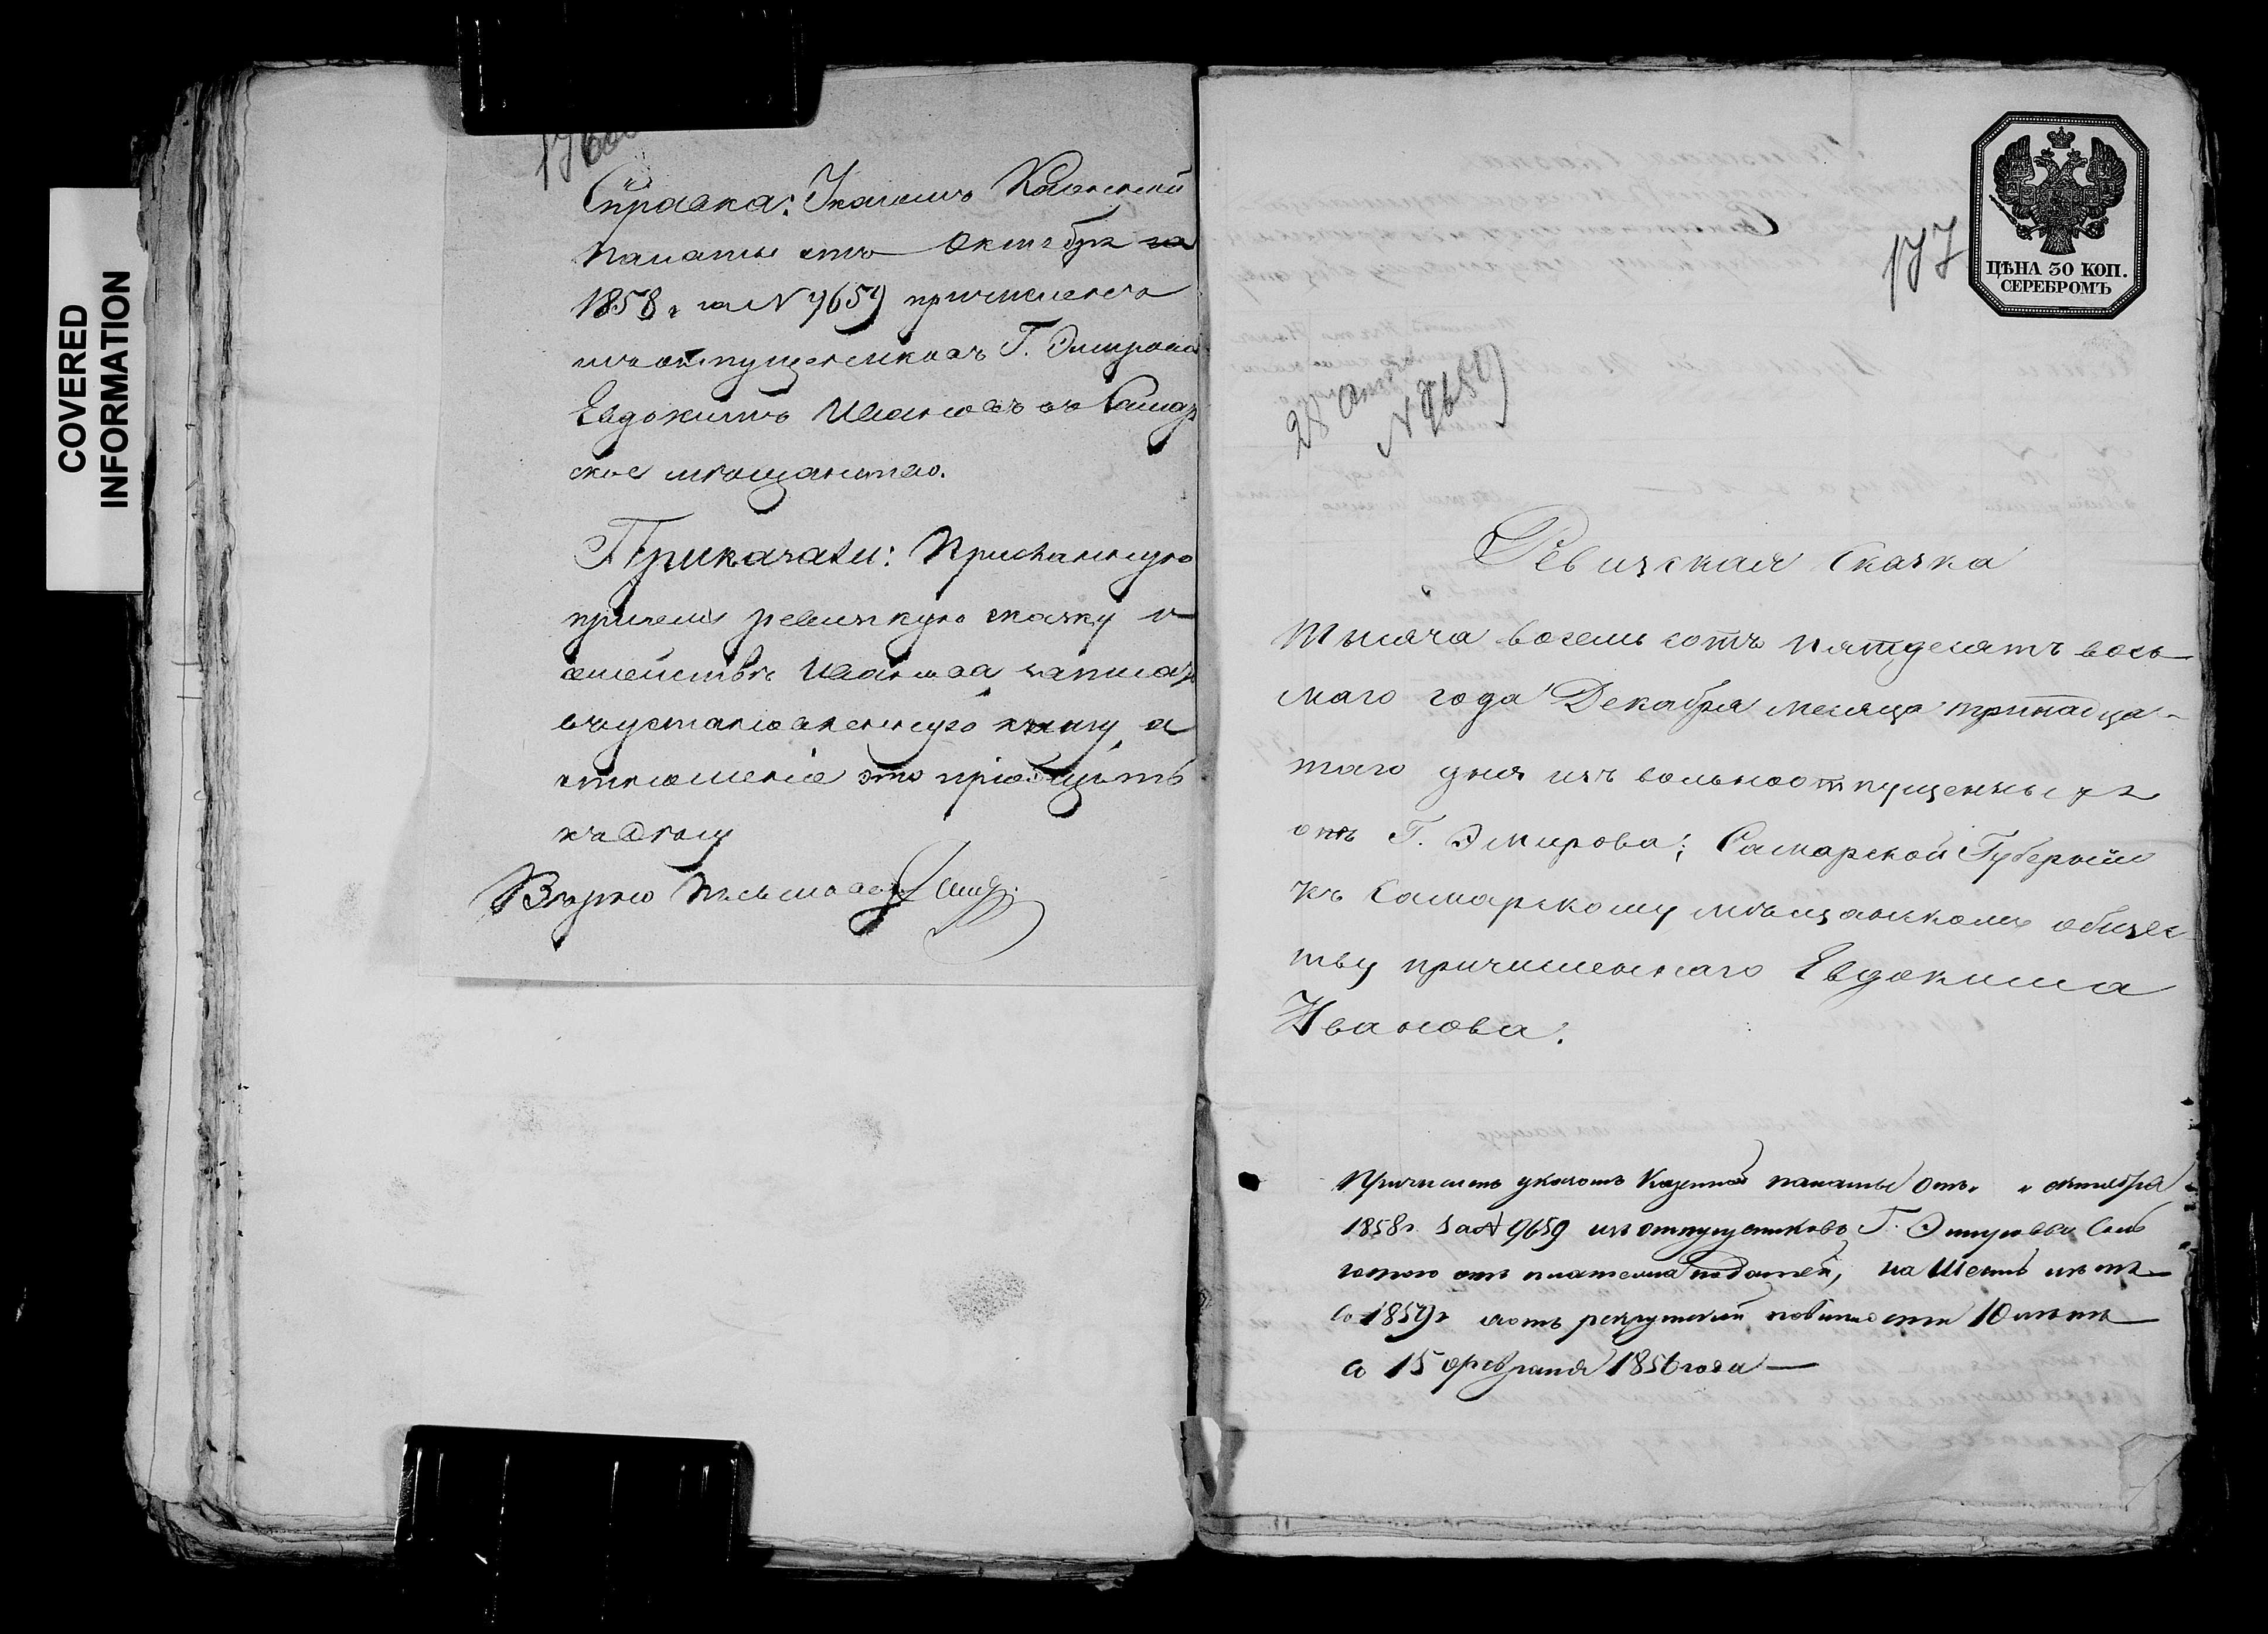 COVERED
INFORMATION
176
Справка: Указомъ Казенной
палаты отъ Октября
1858 г. за N 9659 причисленъ
изъ отпущенниковъ Г. Эмирова
Евдокимъ Ивановъ въ Самар
ское мѣщанство.
Приказали: Присланную
при семъ ревизкую сказку о
семействѣ Иванова записать
въ установленную книгу, а
отношеніе это пріобщить
къ дѣлу
Вѣрно Письмов.
177
ЦѢНА 30 КОП.
СЕРЕБРОМЪ
28
N 9659
Ревизская Сказка
Тысяча восемь сотъ пятдесятъ вось
маго года Декабря месяца тринадца-
таго дня изъ вольноотпущенныхъ
отъ Г. Эмирова; Самарской Губерніи
къ Самарскому мѣщанскому общес
тву причисленнаго Евдокима
Иванова.
Причисленъ указомъ Казенной палаты отъ " " октября
1858 г. за N 9659 изъ отпущенниковъ Г. Эмирова съ
готою отъ платежа податей, на Шесть лѣтъ
съ 1859 г. а отъ рекрутской повинности 10 лѣтъ
съ 15 февраля 1856 года —